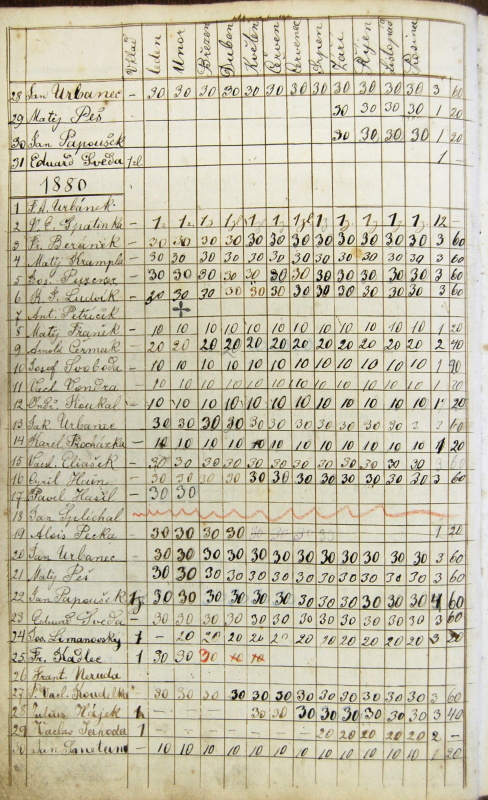 Vklad leden Unor Březen Duben Květen Červen Červenec Srpen Září Říjen Listopad Prosinec
28 Jan Urbanec - 30 30 30 30 30 30 30 30 30 30 30 30 3 60
29 Matěj Peš 30 30 30 30 1 20
30 Jan Papoušek 30 30 30 30 1 20
31 Eduard Svěda 1 –
1880
1 F. A. Urbánek
2 - 1 1 1 1 1 1 1 1 1 1 1 1 12 –
3 Fr. Beránek - 30 30 30 30 30 30 30 30 30 30 30 30 3 60
4 Matěj Krampla - 30 30 30 30 30 30 30 30 30 30 30 30 3 60
5 Jos. - 30 30 30 30 30 30 30 30 30 30 30 30 3 60
6 Ludvík - 30 30 30 30 30 30 30 30 30 30 30 30 3 60
7 Ant. Petříček
8 Matěj Franěk - 10 10 10 10 10 10 10 10 10 10 10 10 1 20
9 Arnold Čermák - 20 20 20 20 20 20 20 20 20 20 20 20 2 40
10 Josef Svoboda - 10 10 10 10 10 10 10 10 10 10 10 10 1 20
11 Cyril Vondra - 10 10 10 10 10 10 10 10 10 10 10 10 1 20
12 Koukal - 10 10 10 10 10 10 10 10 10 10 10 10 1 20
13 Urbanec 30 30 30 30 30 30 30 30 30 30 30 3 60
14 Karel Procházka - 10 10 10 10 10 10 10 10 10 10 10 10 1 20
15 Vacl. Eliášek - 30 30 30 30 30 30 30 30 30 30 30 30 3 60
16 Cyril Hain - 30 30 30 30 30 30 30 30 30 30 30 30 3 60
17 Pavel Hašil - 30 30
18 Jan Šplíchal
19 Alois Pecka - 30 30 30 30 1 20
20 Jan Urbanec - 30 30 30 30 30 30 30 30 30 30 30 30 3 60
21 Matěj Peš 30 30 30 30 30 30 30 30 30 30 30 30 3 60
22 Jan Papoušek 1 30 30 30 30 30 30 30 30 30 30 30 30 4 60
23 Eduard Svěda - 30 30 30 30 30 30 30 30 30 30 30 30 3 60
24 Jos. Limanovský 1 - 20 20 20 20 20 20 20 20 20 20 20 3 20
25 Fr. Kadlec 1 30 30 30
26 Frant. Neruda
27 Vacl. Koudelka 30 30 30 30 30 30 30 30 30 30 30 30 3 60
28 Hájek 1 - - - - 30 30 30 30 30 30 30 30 3 40
29 Vaclav 1 - - 20 20 20 20 20 2 –
30 Jan - 10 10 10 10 10 10 10 10 10 10 10 10 1 20